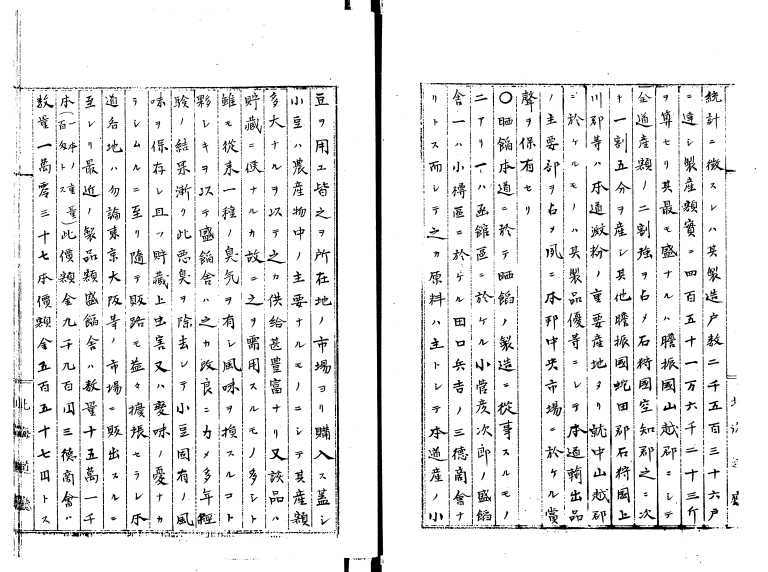 統計ニ徴スレハ其製造戸数二千五百三十六戸
ニ達シ製産額實ニ四百五十一万六千二十三斤
ヲ算セリ其最モ盛ナルハ膽振國山越郡ニシテ
全道産額ノ二割強ヲ占メ石狩國空知郡之ニ次
キ一割五分ヲ産シ其他膽振國虻田郡石狩國上
川郡等ハ本道澱粉ノ重要産地タリ就中山越郡
ニ於ケルモノハ其製品優等ニシテ本道輸出品
ノ主要部ヲ占メ夙ニ本邦中央市場ニ於ケル賞
聲ヲ保有セリ
〇晒餡本道ニ於テ晒餡ノ製造ニ從事スルモノ
二アリ一ハ函館區ニ於ケル小菅彦次郎ノ盛餡
舎一ハ小樽區ニ於ケル田口兵吉ノ三徳商會ナ
リトス而シテ之カ原料ハ主トシテ本道産ノ小
豆ヲ用ユ皆之ヲ所在地ノ市場ヨリ購入ス蓋シ
小豆ハ農産物中ノ主要ナルモノニシテ其産額
多大ナルヲ以テ之カ供給甚豊富ナリ又該品ハ
貯藏ニ便ナルカ故ニ之ヲ需用スルモノ多シト
雖モ從来一種ノ臭気ヲ有シ風味ヲ損スルコト
夥シキヲ以テ盛餡舎ハ之カ改良ニカメ多年經
驗ノ結果漸ク此悪臭ヲ除去シテ小豆固有ノ風
味ヲ保存シ且ツ貯藏上虫害又ハ変味ノ憂ナカ
ラシムルニ至リ随テ販路モ益々擴張セラレ本
道各地ハ勿論東京大阪等ノ市場ニ販出スルニ
至レリ最近ノ製品額盛餡舎ハ数量十五萬一千
本(一本ノ重量百匁トス)此價額金九千九百円三徳商會ハ
数量一萬零三十七本價額金五百五十七円トス
北海道廳